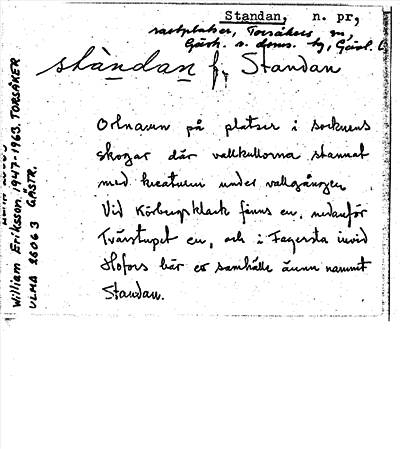 Standan, n. pr,
rastplatser, Torsåkers sn,
Gästr. o. dnns. by, Gävl. l.
stàndan f. Standan
Ortnamn på platser i socknens
skogar där vallkullorna stannat
med kreaturen under vallgången
Vid Körbergsklack finns en, nedanför
Tvärstupet en, och i Fagersta invid
Hofors bär ett samhälle ännu namnet
Standan.
William Eriksson. 1947-1963. TORSÅKER
ULMA 26063 GÄSTR.